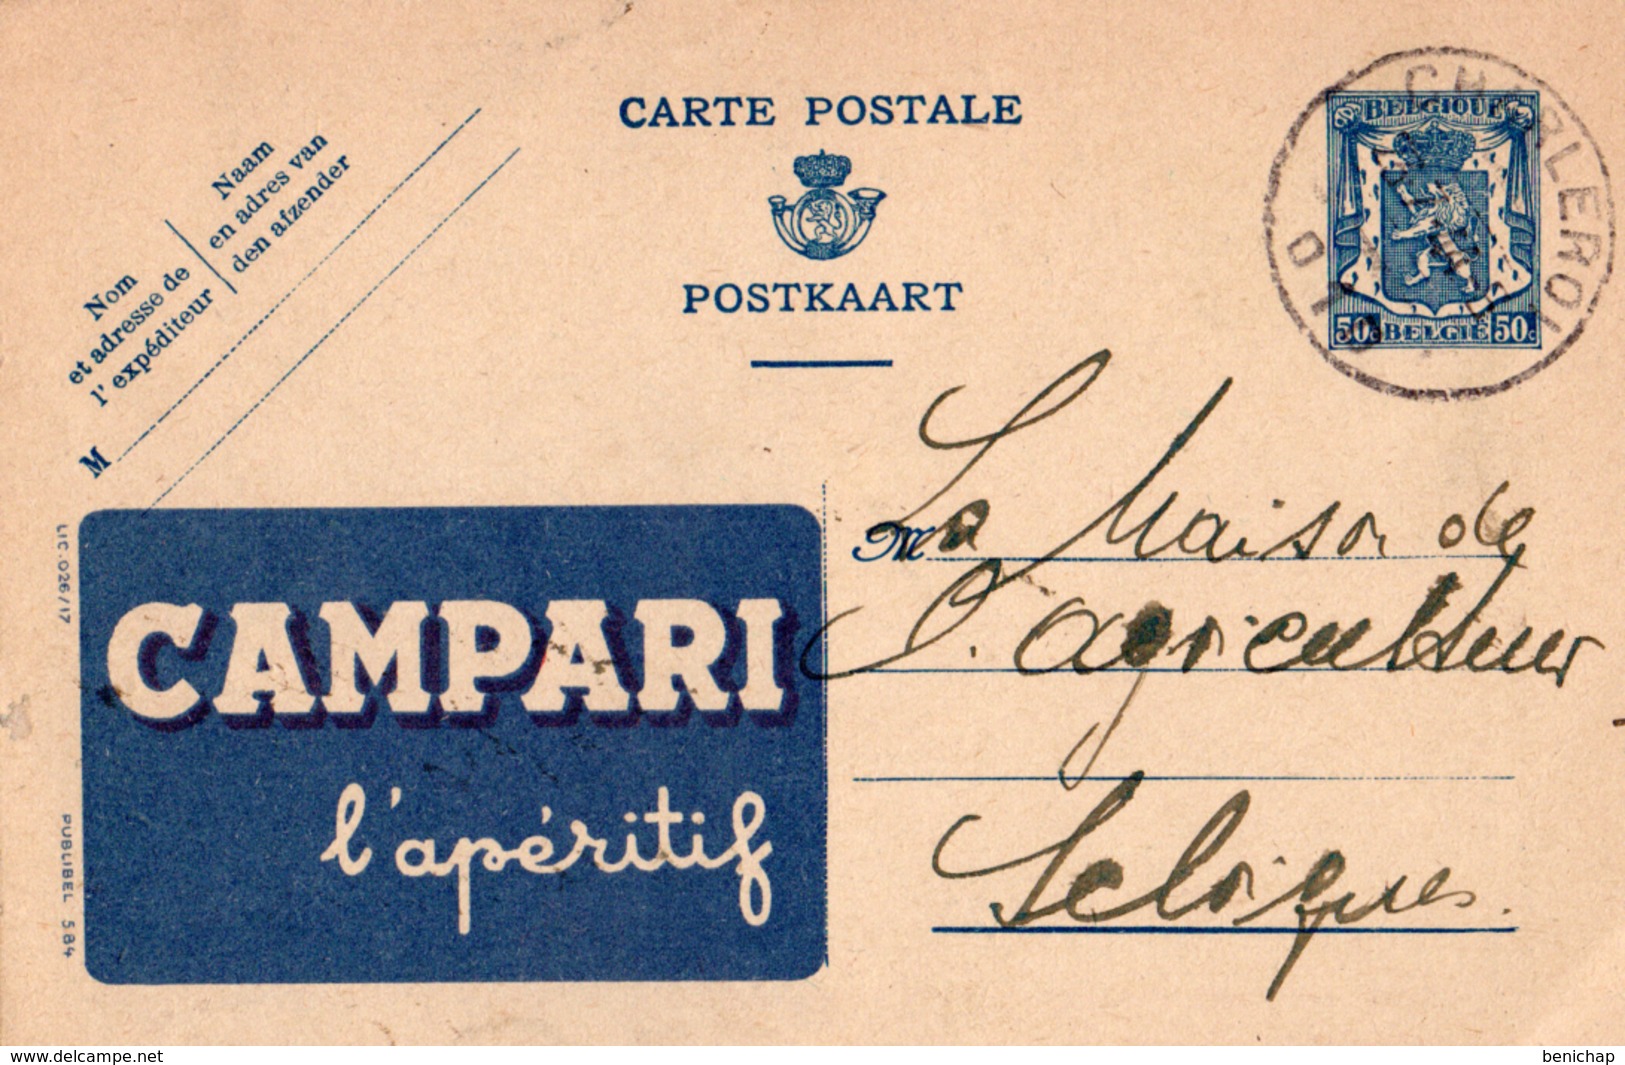 CARTE POSTALE
POSTKAART
Nom
et adresse de
l'expéditeur
Naam
en adres van
den afzender
M
BELGIQUE
50c BELGIË 50c
CHARLEROI
LIC. 026/17
PUBLIBEL 584
CAMPARI
l'apéritif
M La Maison de
l'agriculteur
Soignies.
www.delcampe.net
benichap